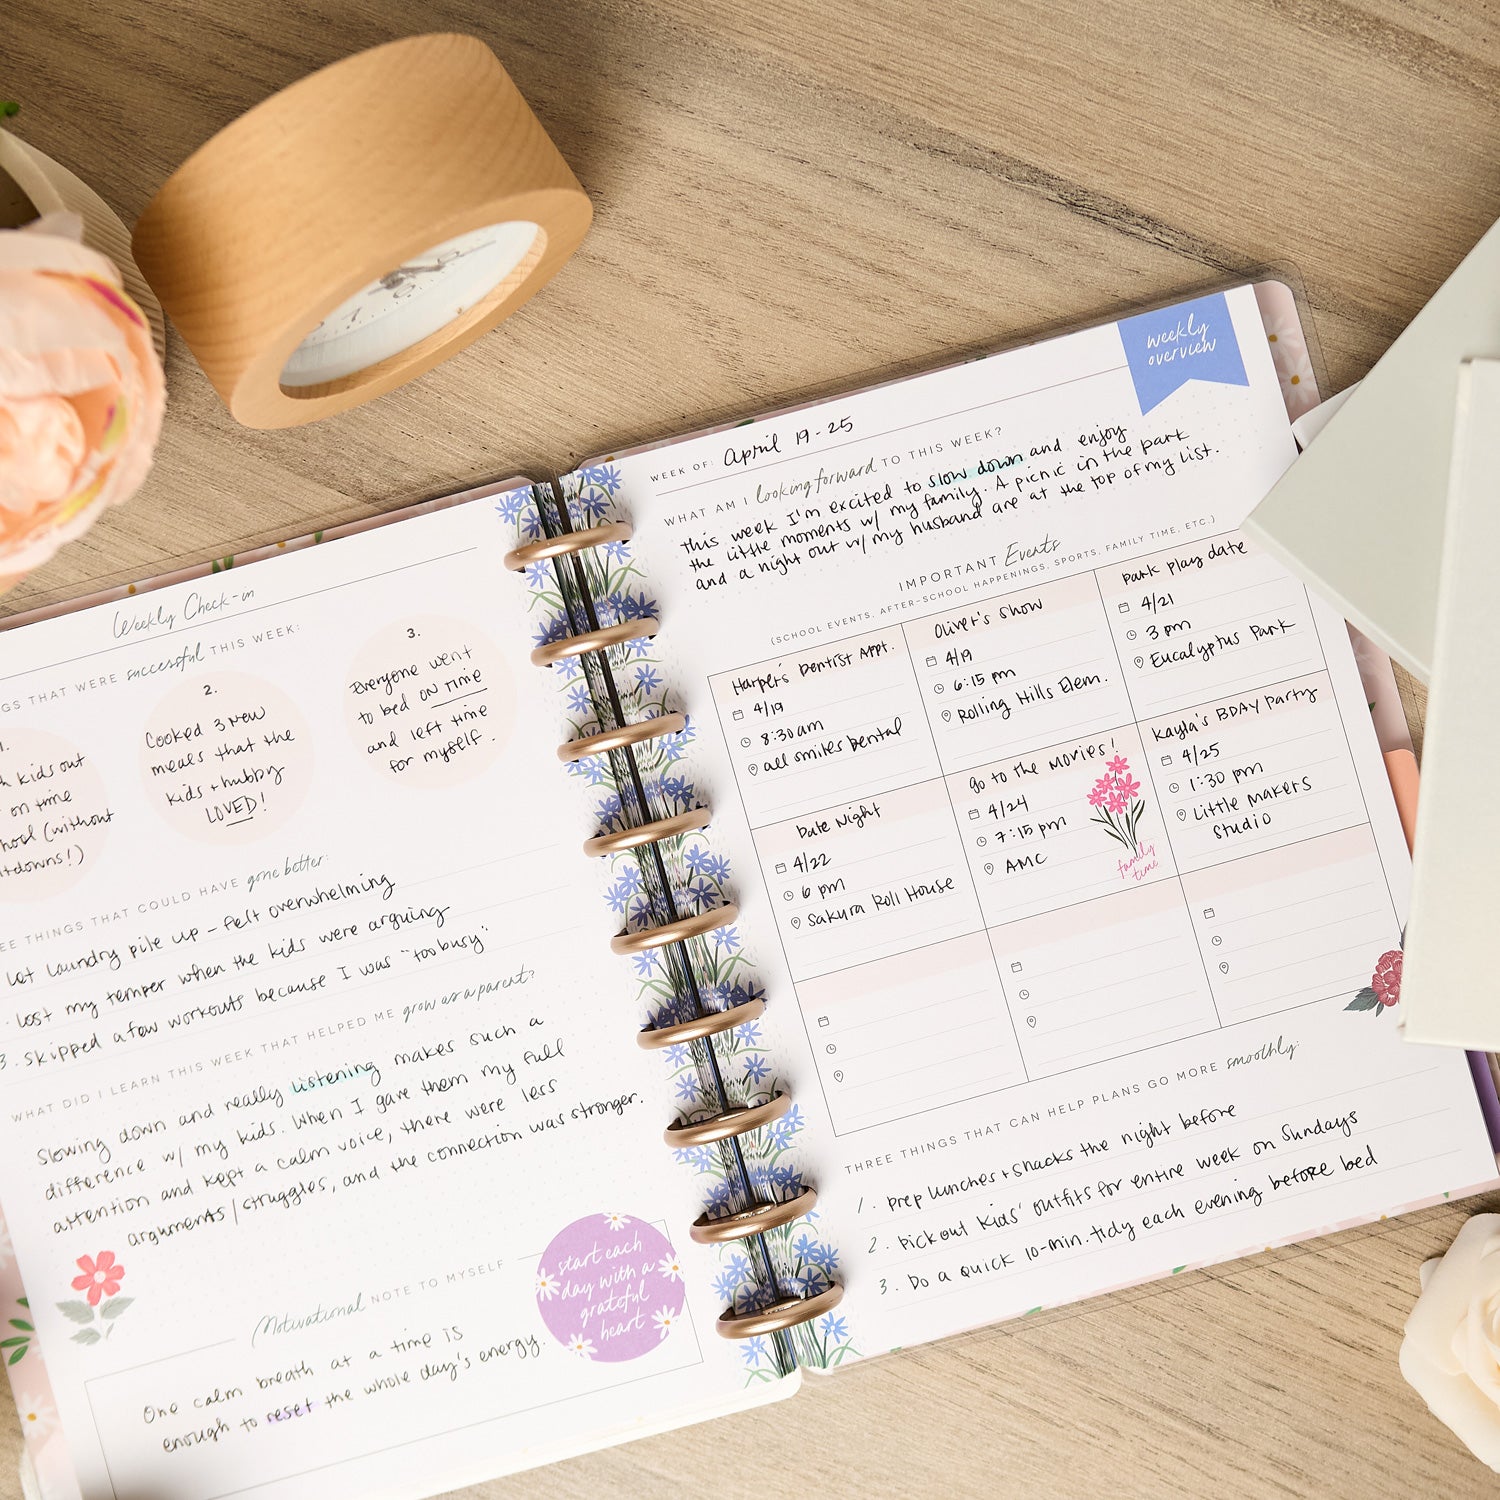 Weekly Check-in
GS THAT WERE successful THIS WEEK:
1.
kids out
on time
(without
tdowns!)
2.
Cooked 3 new
meals that the
kids + hubby
LOVED!
3.
Everyone went
to bed ON TIME
and left time
for myself.
EE THINGS THAT COULD HAVE gone better:
Let laundry pile up - felt overwhelming
. Lost my temper when the kids were arguing
3. Skipped a few workouts because I was "too busy".
WHAT DID I LEARN THIS WEEK THAT HELPED ME grow as a parent?
Slowing down and really listening makes such a
difference w/ my kids. When I gave them my full
attention and kept a calm voice, there were less
arguments/struggles, and the connection was stronger.
Motivational NOTE TO MYSELF
One calm breath at a time is
enough to reset the whole day's energy.
start each
day with a
grateful
heart
weekly
overview
WEEK OF: April 19-25
WHAT AM I looking forward TO THIS WEEK?
This week I'm excited to slow down and enjoy
the little moments w/ my family. A picnic in the park
and a night out w/ my husband are at the top of my list.
IMPORTANT Events
(SCHOOL EVENTS, AFTER-SCHOOL HAPPENINGS, SPORTS, FAMILY TIME, ETC.)
Harper's Dentist Appt.
4/19
8:30am
all smiles Dental
Oliver's Show
4/19
6:15 pm
Rolling Hills Elem.
Park Play date
4/21
3 pm
Eucalyptus Park
Date Night
4/22
6 pm
Sakura Roll House
Go to the Movies!
4/24
7:15 pm
AMC
family
time
Kayla's BDAY Party
4/25
1:30 pm
Little Makers
Studio
THREE THINGS THAT CAN HELP PLANS GO MORE smoothly:
1. Prep lunches + snacks the night before
2. Pick out kids' outfits for entire week on Sundays
3. Do a quick 10-min. tidy each evening before bed